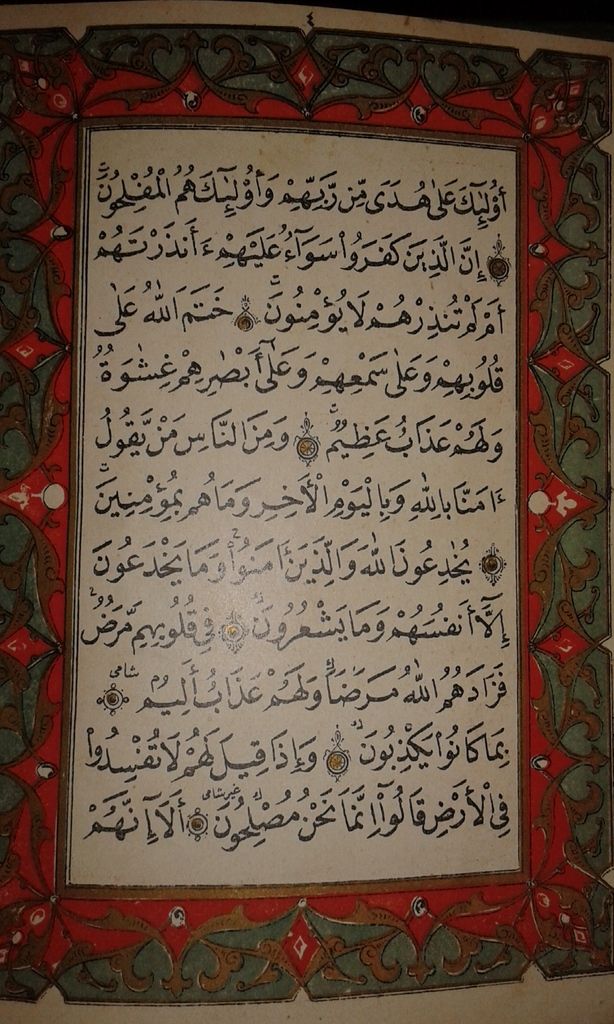 ٤
أُوْلَٰٓئِكَ عَلَىٰ هُدًى مِّن رَّبِّهِمْ وَأُوْلَٰٓئِكَ هُمُ الْمُفْلِحُونَ
إِنَّ الَّذِينَ كَفَرُواْ سَوَآءٌ عَلَيْهِمْ ءَأَنذَرْتَهُمْ
أَمْ لَمْ تُنذِرْهُمْ لَا يُؤْمِنُونَ خَتَمَ اللَّهُ عَلَىٰ
قُلُوبِهِمْ وَعَلَىٰ سَمْعِهِمْ وَعَلَىٰٓ أَبْصَٰرِهِمْ غِشَٰوَةٌ
وَلَهُمْ عَذَابٌ عَظِيمٌ وَمِنَ النَّاسِ مَنْ يَقُولُ
ءَامَنَّا بِاللَّهِ وَبِالْيَوْمِ الْأَخِرِ وَمَا هُم بِمُؤْمِنِينَ
يُخَٰدِعُونَ اللَّهَ وَالَّذِينَ ءَامَنُواْ وَمَا يَخْدَعُونَ
إِلَّآ أَنفُسَهُمْ وَمَا يَشْعُرُونَ فِي قُلُوبِهِم مَّرَضٌ
فَزَادَهُمُ اللَّهُ مَرَضًا وَلَهُمْ عَذَابٌ أَلِيمٌ شامى
بِمَا كَانُواْ يَكْذِبُونَ وَإِذَا قِيلَ لَهُمْ لَا تُفْسِدُواْ
فِي الْأَرْضِ قَالُوٓاْ إِنَّمَا نَحْنُ مُصْلِحُونَ غير شامى أَلَآ إِنَّهُمْ